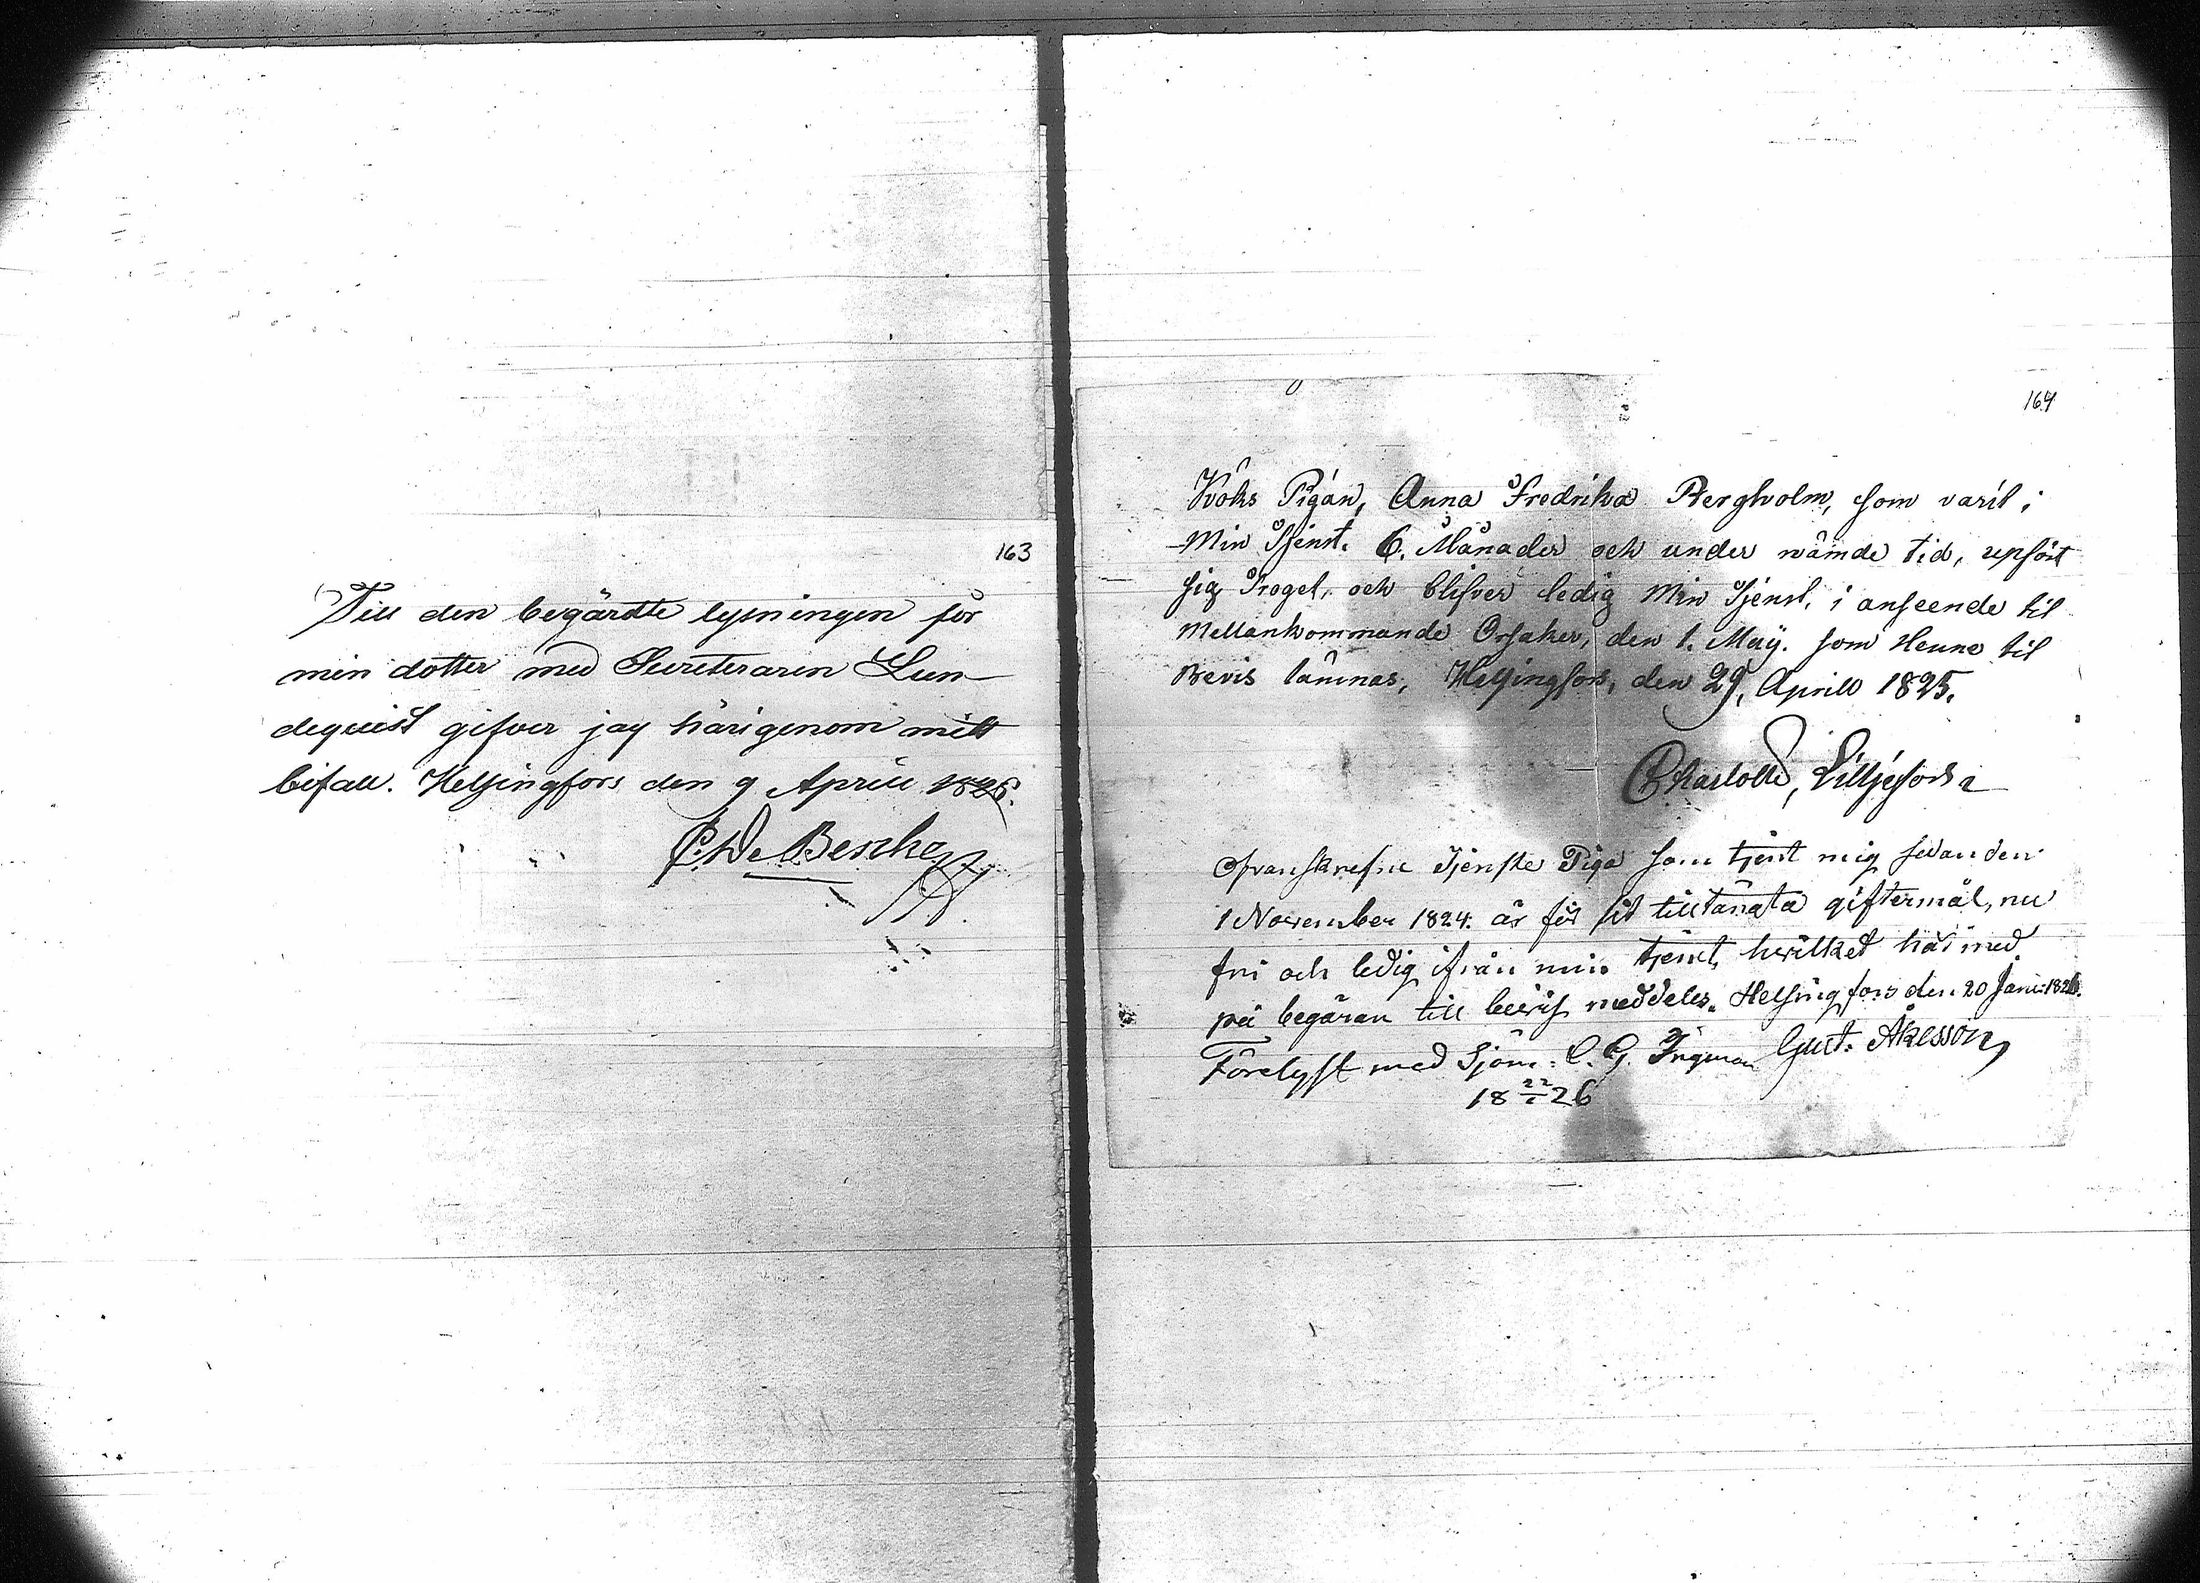 163
Till den begärdte lysningen för
min dotter med Secreteraren Lun-
dequist gifver jag härigenom mitt
bifall. Helsingfors den 9 April 1826.
C. De Besche
164
Köks Pigan, Anna Fredrika Bergholm, som varit i
Min Tjenst. 6. Månader och under nämde tid, upfört
sig Troget, och blifver ledig Min Tjenst, i anseende til
Mellankommande Orsaker, den 1. Maÿ. som Henne til
Bevis lämnas, Helsingfors, den 29, Aprill 1825.
Charlotte, Lilljefors
Ofvanskrefne Tjenste Piga som tjent mig sedan den
1 November 1824. är för sit tilltänata giftermål, nu
fri och ledig ifrån min tjenst, hvilket här med
på begäran till bevis meddeles. Helsingfors den 20 Janu: 1826.
Gust: Åkesson
Förelyst med Sjöm: C. G. Ingman
18 22/1 26